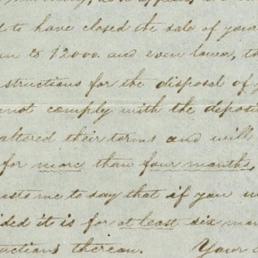 to have closed the sale of your
to $2000 and even lower, to
structions for the disposal of y
not comply with the deposit
altered their terms and will
for more than four months,
me to say that if you w
ded it is for at least six mon
uctions thereon. Your o